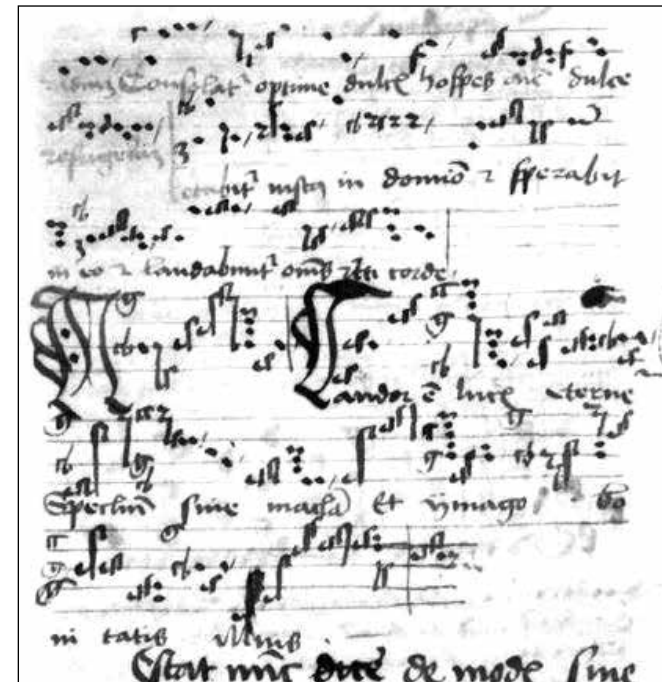 Consolator optime dulcis hospes aīe dulce
refugeriū
etabit iustꝯ in domīo ⁊ sperabit
in eo ⁊ laudabunt oms rcti corde
Candor ē lucis eterne
Speclūm sine macla Et ymago bo
ni tatis illius
Estat nūc dicē de modis sine